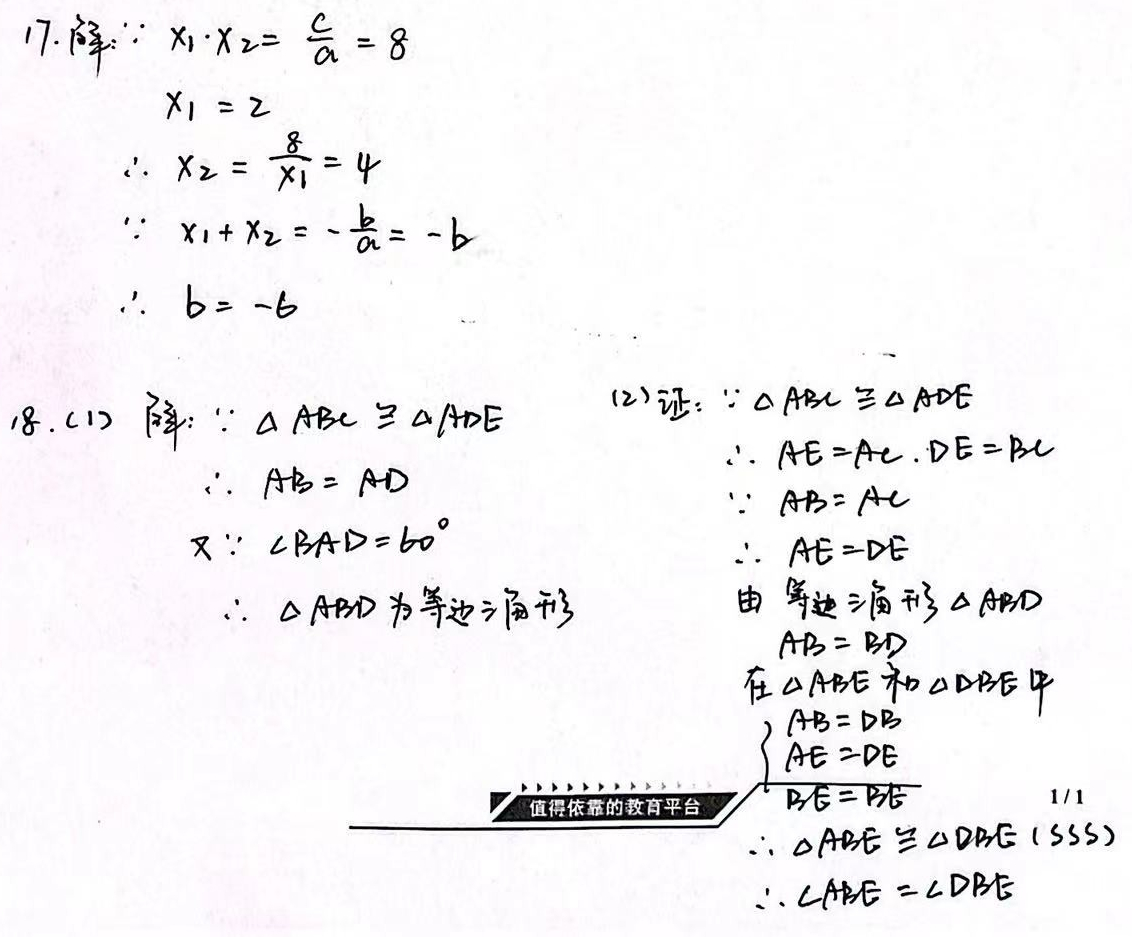 17.解:∵ x₁·x₂= c/a = 8
x₁ = 2
∴ x₂ = 8/x₁ = 4
∵ x₁+x₂ = -b/a = -b
∴ b = -6
18.(1) 解:∵ △ABC ≌ △ADE
∴ AB = AD
又∵ ∠BAD=60°
∴ △ABD为等边三角形
(2)证:∵ △ABC ≌ △ADE
∴ AE=AC.DE=BC
∵ AB=AC
∴ AE=DE
由 等边三角形△ABD
AB=BD
在△ABE和△DBE中
{ AB=DB
AE=DE
BE=BE
∴ △ABE ≌ △DBE (SSS)
∴ ∠ABE = ∠DBE
值得依靠的教育平台
1/1